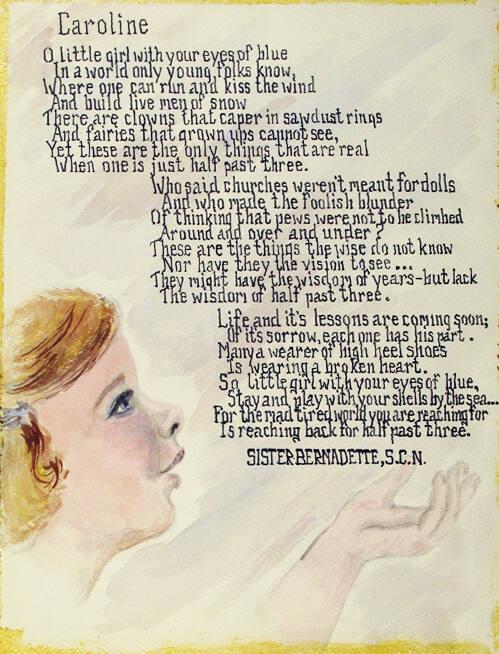 Caroline
O little girl with your eyes of blue
In a world only young folks know,
Where one can run and kiss the wind
And build live men of snow
There are clowns that caper in sawdust rings
And fairies that grown ups cannot see,
Yet these are the only things that are real
When one is just half past three.
Who said churches weren't meant for dolls
And who made the foolish blunder
Of thinking that pews were not to be climbed
Around and over and under?
These are the things the wise do not know
Nor have they the vision to see...
They might have the wisdom of years-but lack
The wisdom of half past three.
Life and it's lessons are coming soon;
Of its sorrow, each one has his part.
Many a wearer of high heel shoes
Is wearing a broken heart.
So little girl with your eyes of blue,
Stay and play with your shells by the sea...
For the mad tired world you are reaching for
Is reaching back for half past three.
SISTER BERNADETTE, S.C.N.